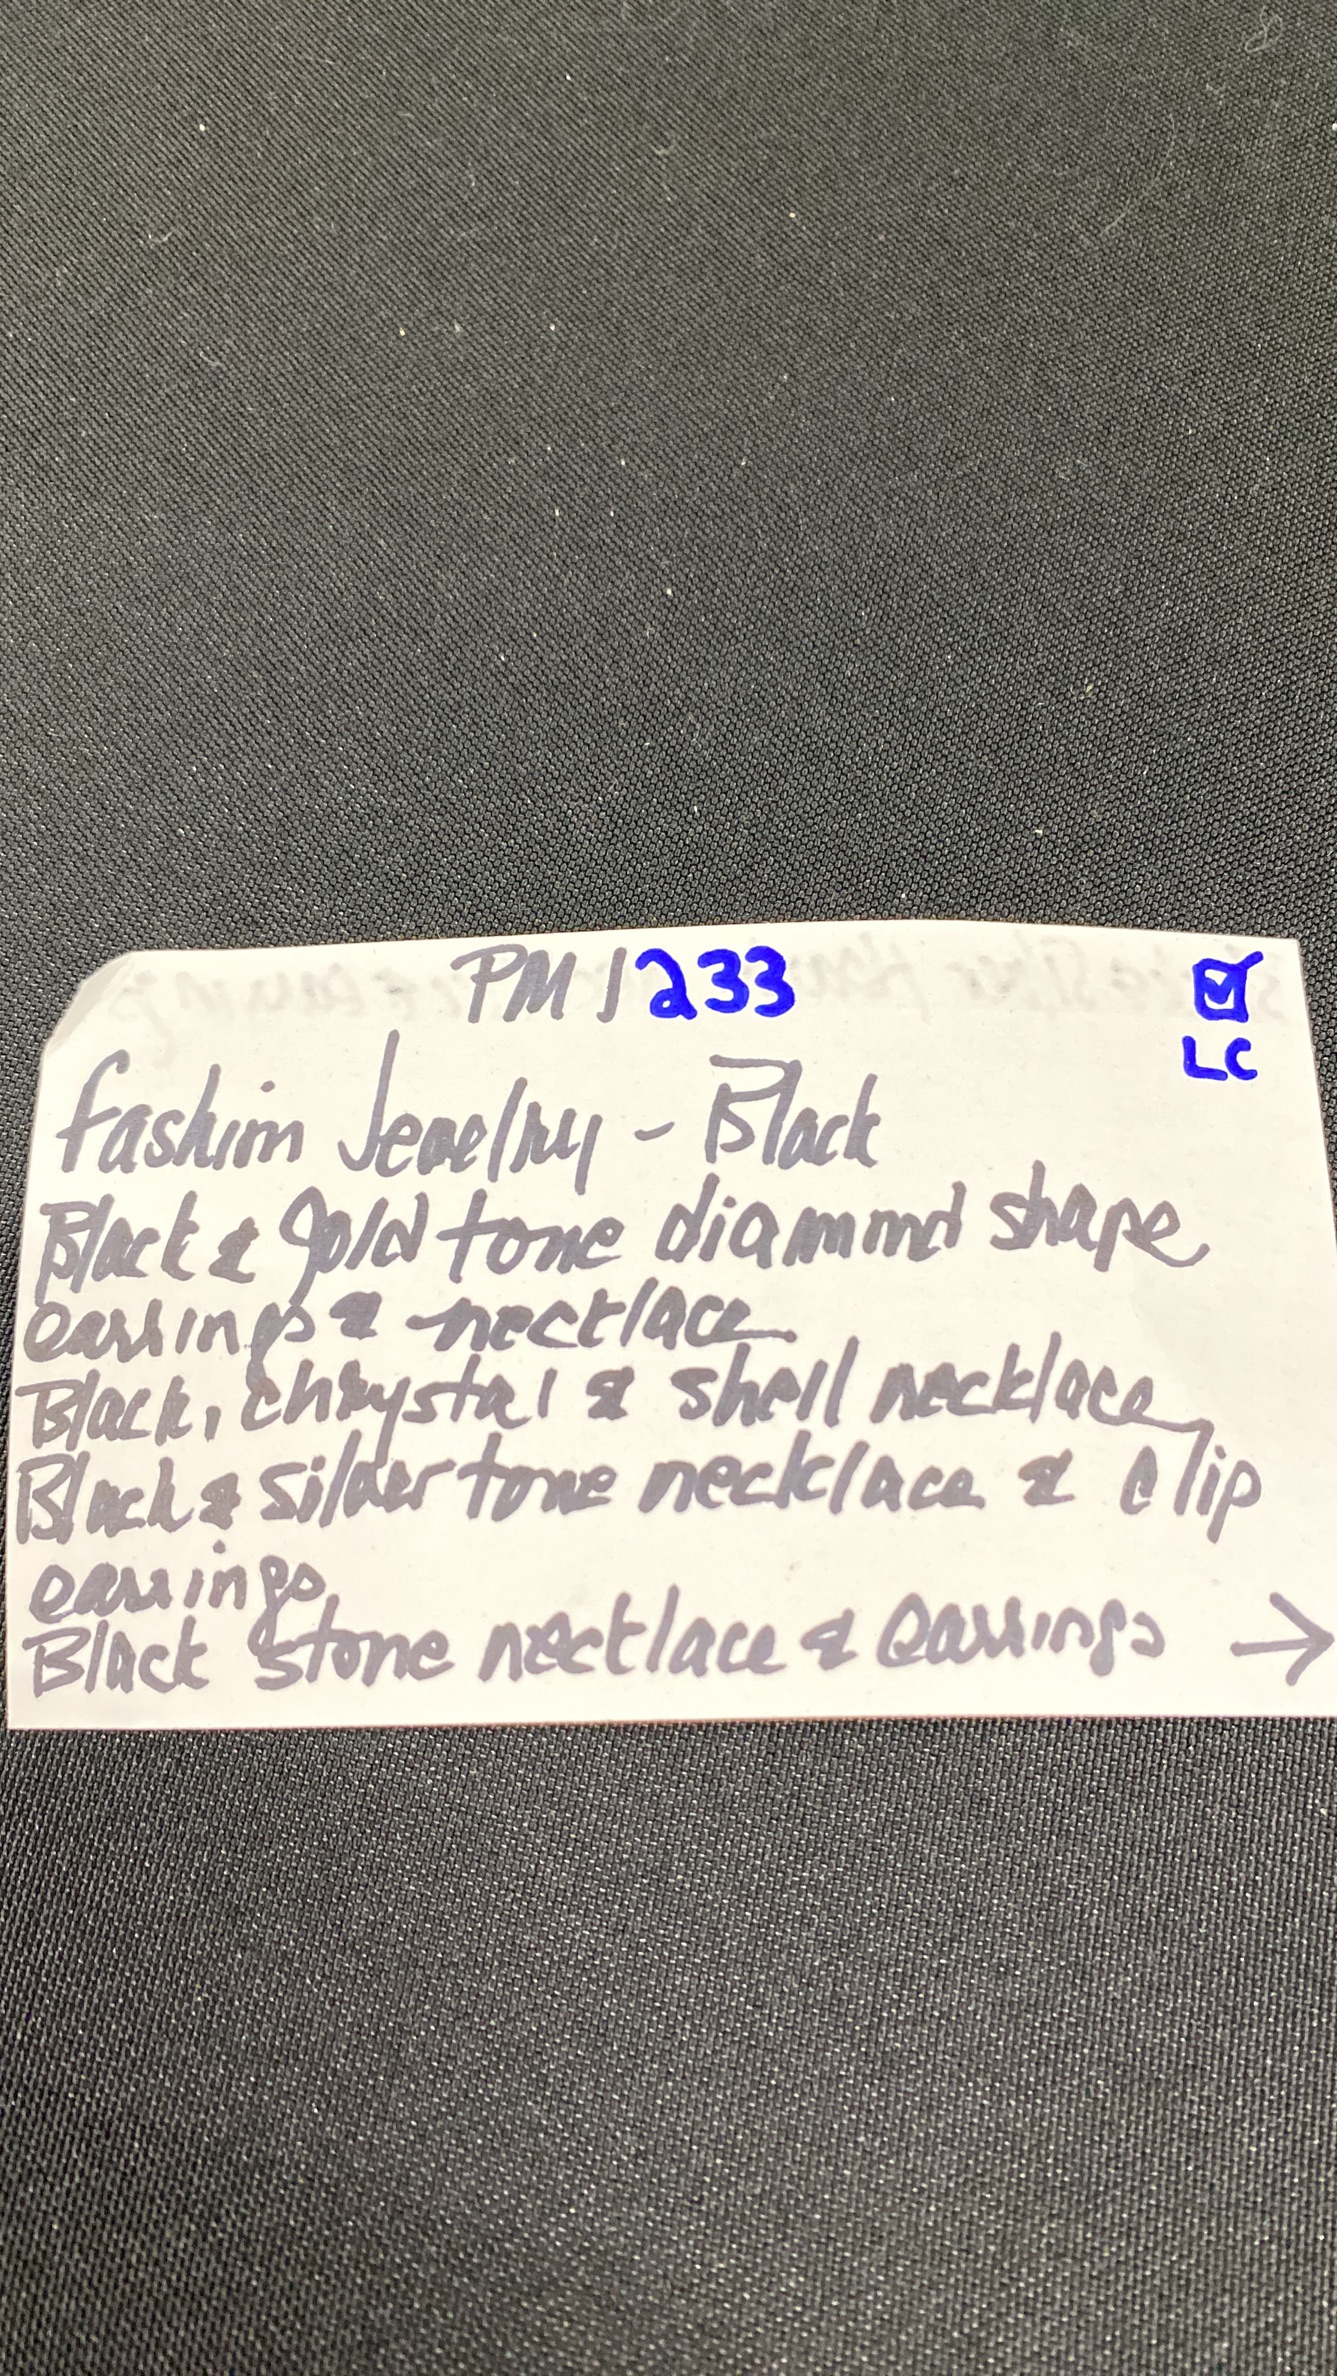 PM 1233 ☑
LC
Fashion Jewelry - Black
Black & Gold tone diamond shape
earrings & necklace
Black, chrystal & shell necklace
Black & silver tone necklace & clip
earrings
Black stone necklace & earrings →